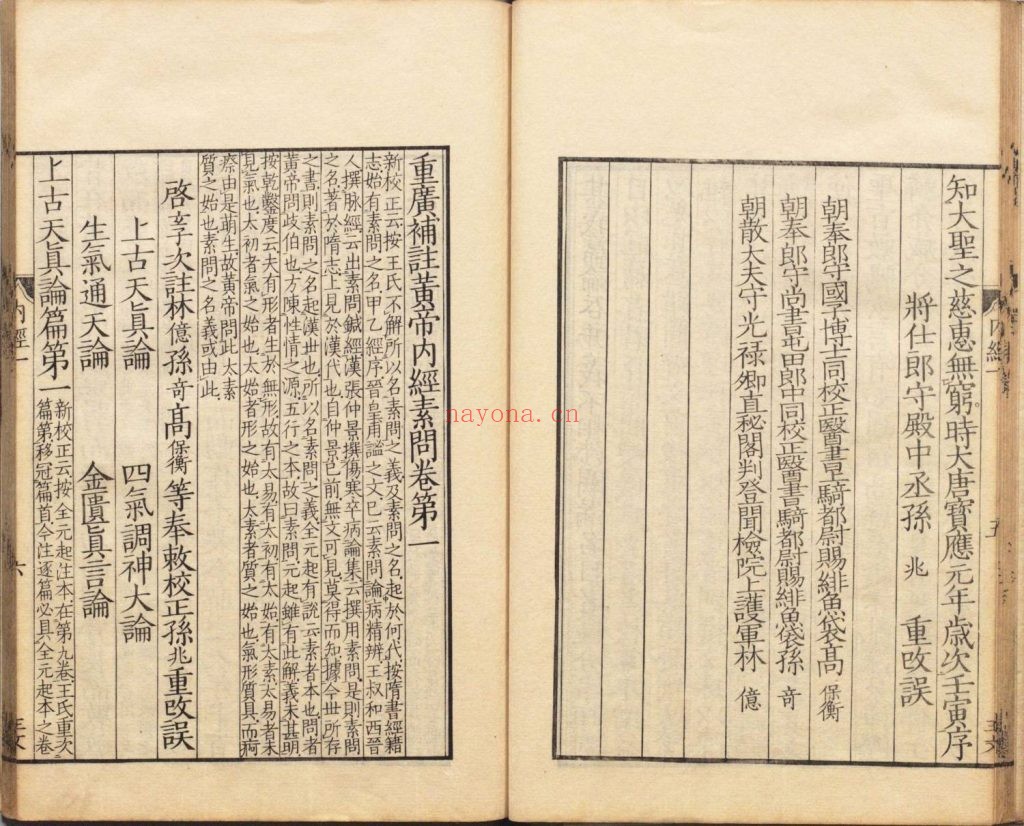 知大聖之慈惠無窮時大唐寶應元年歲次壬寅序
將仕郎守殿中丞孫 兆 重改誤
朝奉郎守國子博士同校正醫書上騎都尉賜緋魚袋髙 保衡
朝奉郎守尚書屯田郎中同校正醫書騎都尉賜緋魚袋孫 奇
朝散大夫守光祿卿直秘閣判登聞檢院上護軍林 億
内經一
五
重廣補註黃帝内經素問卷第一
新校正云按王氏不解所以名素問之義及素問之名起於何代按隋書經籍
志始有素問之名甲乙經序晉皇甫謐之文已云素問論病精辨王叔和西晉
人撰脉經云出素問鍼經漢張仲景撰傷寒卒病論集云撰用素問是則素問
之名著於隋志上見於漢代也自仲景已前無文可見莫得而知據今世所存
之書則素問之名起漢世也所以名素問之義全元起有說云素者本也問者
黃帝問歧伯也方陳性情之源五行之本故曰素問元起雖有此解義未甚明
按乾鑿度云夫有形者生於無形故有太易有太初有太始有太素太易者未
見氣也太初者氣之始也太始者形之始也太素者質之始也氣形質具而痾
瘵由是萌生故黃帝問此太素
質之始也素問之名義或由此
啓玄子次註林億孫奇髙保衡等奉敕校正孫兆重改誤
上古天真論 四氣調神大論
生氣通天論 金匱真言論
上古天真論篇第一
新校正云按全元起注本在第九卷王氏重次
篇第移冠篇首今注逐篇必具全元起本之卷
内經一
六
nayona.cn